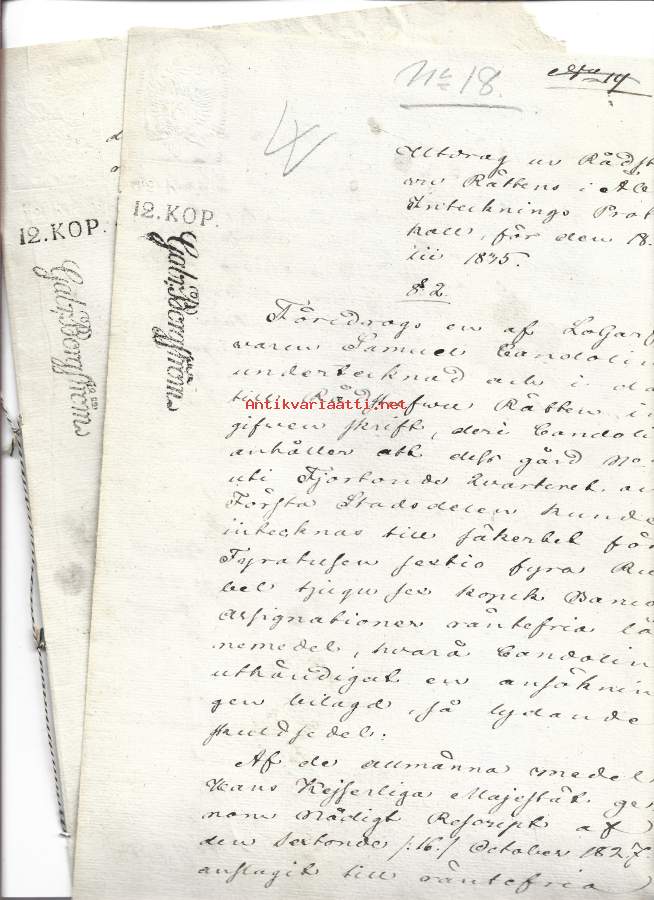 No 18.
12. KOP.
12. KOP.
Gabr. Bergström
Gabr. Bergström
Utdrag av Rådst
wu Rättens i Åb
Intecknings Prot
koll, för den 18.
iii 1835.
§ 2.
Föredrogs en af Logarf
waren Samuel Candolin
undertecknad och i da
till Rådstufwu Rätten in
gifwen skrift, deri Candoli
anhåller att dess gård No
uti Fjortonde Quarteret au
Första Stadsdelen kunde
intecknas till säkerhet för
Fyratusen sextio fyra Ru
bel tjugu sex kopek Banco
Assignationer räntefria lå
nemedel, hwarå Candolin
uthändigat en ansöknin
gen bilagd, så lydande
skuldsedel:
Af de allmänna medel
Hans Kejserliga Majestät ge
nom Nådigt Rescript af
den Sextonde /:16./ October 1827.
anslagit till räntefria
Antikvariaatti.net